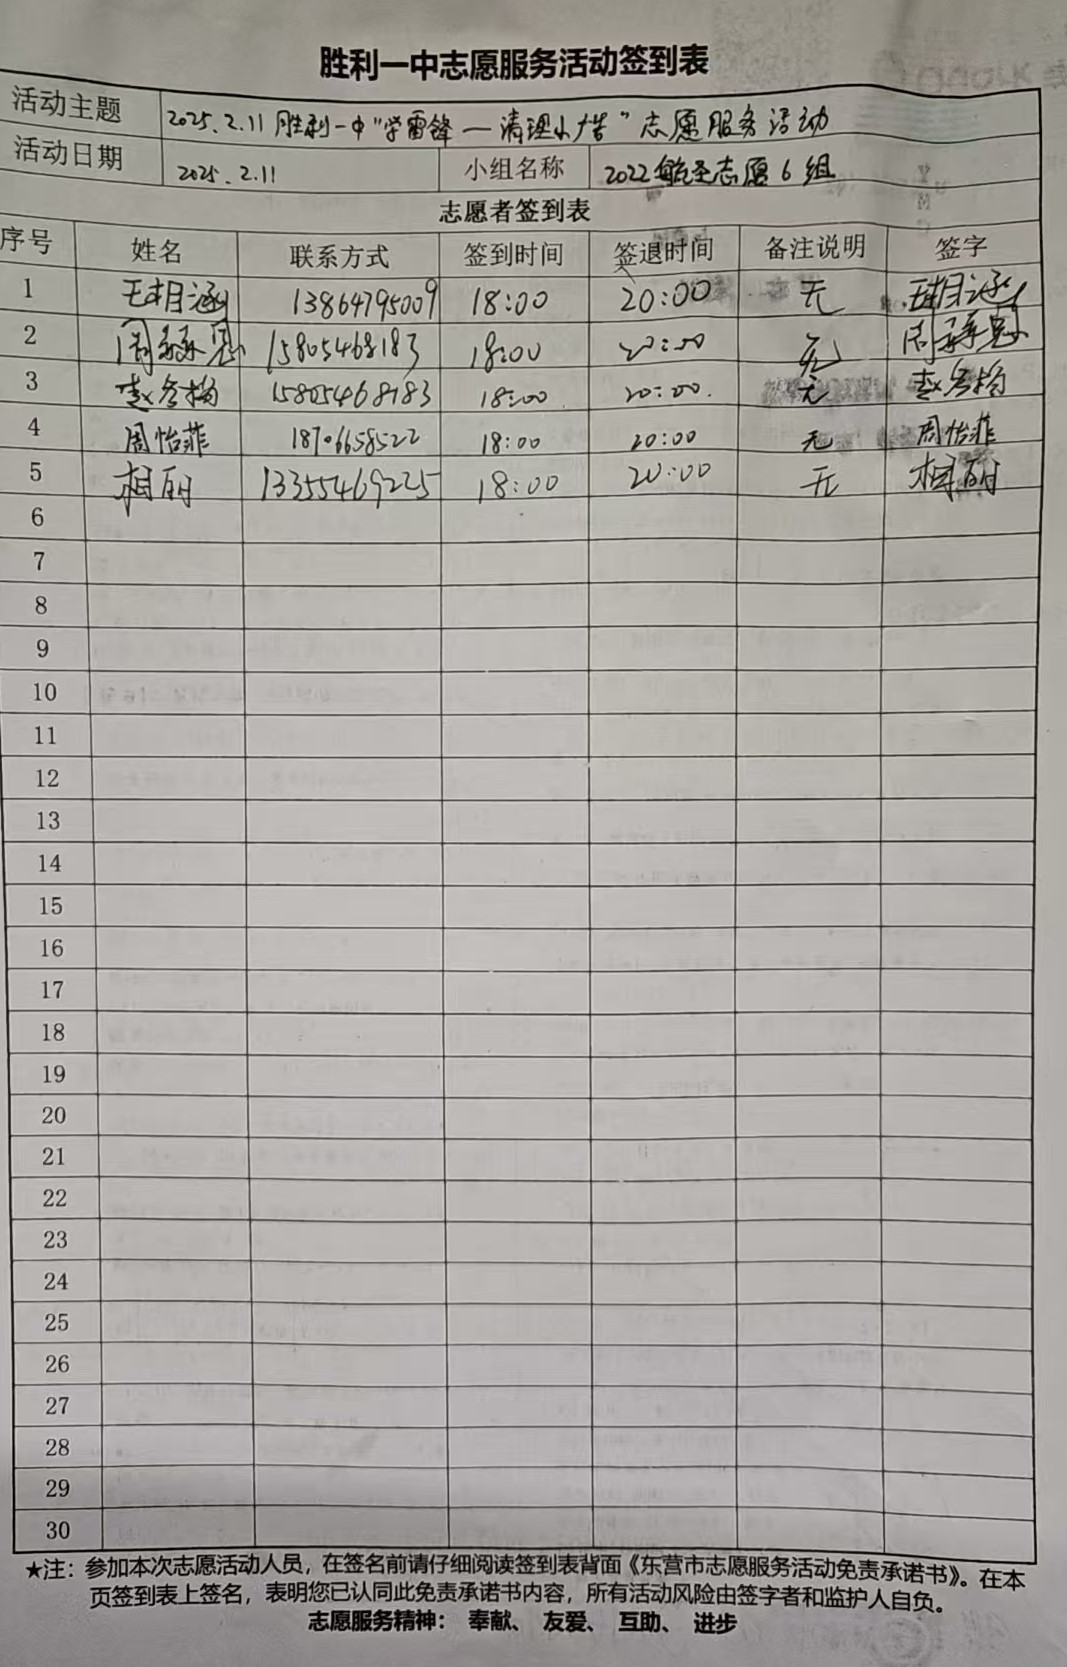 胜利一中志愿服务活动签到表
活动主题 2025.2.11 胜利一中“学雷锋—清理小广告”志愿服务活动
活动日期 2025.2.11 小组名称 2022航圣志愿6组
志愿者签到表
序号 姓名 联系方式 签到时间 签退时间 备注说明 签字
1 王相涵 13864795009 18:00 20:00 无 王相涵
2 周承思 15805468183 18:00 20:00 无 周承思
3 赵冬梅 15805468183 18:00 20:00. 无 赵冬梅
4 周怡菲 18706658522 18:00 20:00 无 周怡菲
5 相丽 13355469225 18:00 20:00 无 相丽
6
7
8
9
10
11
12
13
14
15
16
17
18
19
20
21
22
23
24
25
26
27
28
29
30
★注：参加本次志愿活动人员，在签名前请仔细阅读签到表背面《东营市志愿服务活动免责承诺书》。在本
页签到表上签名，表明您已认同此免责承诺书内容，所有活动风险由签字者和监护人自负。
志愿服务精神： 奉献、 友爱、 互助、 进步